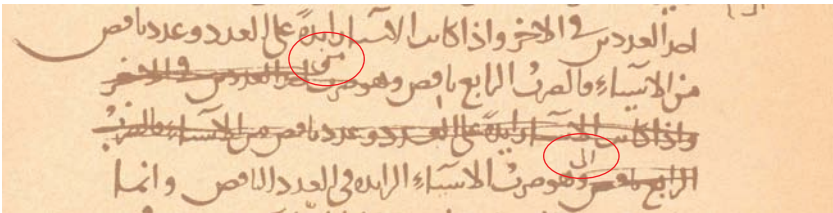 احد العددين في الاخر واذا كانت الاشياء زايدة على العدد وعدد ناقص
من
من الاشياء فالضرب الرابع ناقص وهو ضرب احد العددين في الاخر
واذا كانت الاشياء زايدة على العدد وعدد ناقص من الاشياء فالضرب
الى
الرابع ناقص وهو ضرب الاشياء الزايده في العدد الناقص وانما